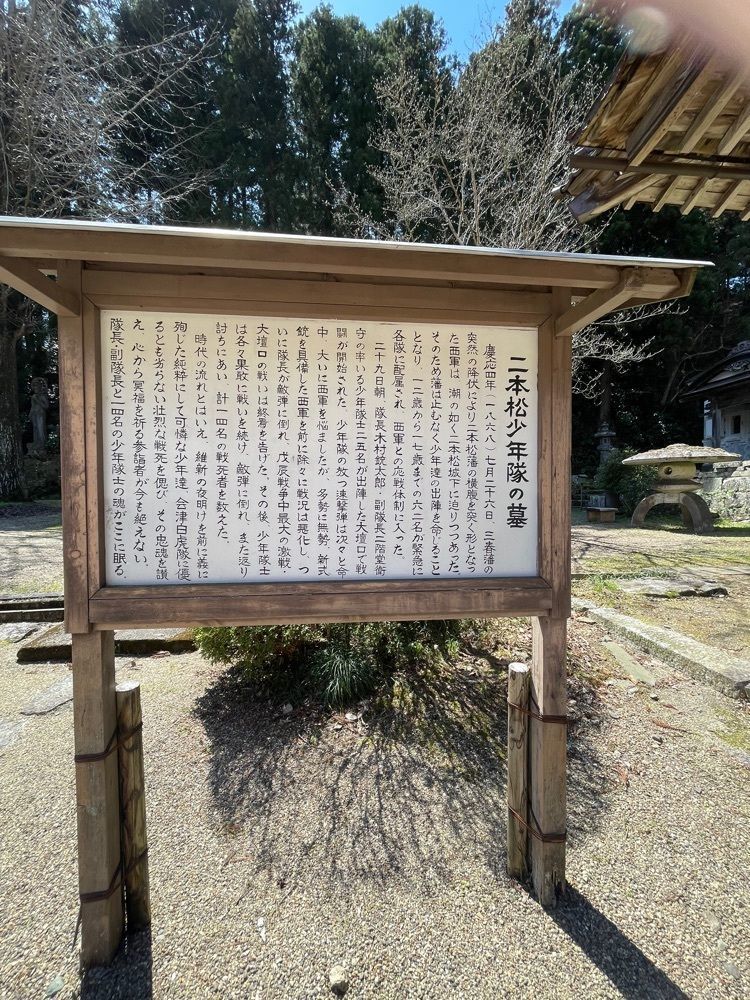 二本松少年隊の墓
慶応四年（一八六八）七月二十六日、三春藩の
突然の降伏により二本松藩の横腹を突く形となっ
た西軍は、潮の如く二本松城下に迫りつつあった。
そのため藩は止むなく少年達の出陣を命ずること
となり、一二歳から一七歳までの六二名が緊急に
各隊に配属され、西軍との応戦体制に入った。
二十九日朝、隊長木村銃太郎・副隊長二階堂衛
守の率いる少年隊士二五名が出陣した大壇口で戦
闘が開始された。少年隊の放つ連撃弾は次々と命
中、大いに西軍を悩ましたが、多勢に無勢、新式
銃を具備した西軍を前に除々に戦況は悪化し、つ
いに隊長が敵弾に倒れ、戊辰戦争中最大の激戦・
大壇口の戦いは終焉を告げた。その後、少年隊士
は各々果敢に戦いを続け、敵弾に倒れ、また返り
討ちにあい、計一四名の戦死者を数えた。
時代の流れとはいえ、維新の夜明けを前に義に
殉じた純粋にして可憐な少年達、会津白虎隊に優
るとも劣らない壮烈な戦死を偲び、その忠魂を讃
え、心から冥福を祈る参詣者が今も絶えない。
隊長、副隊長と一四名の少年隊士の魂がここに眠る。